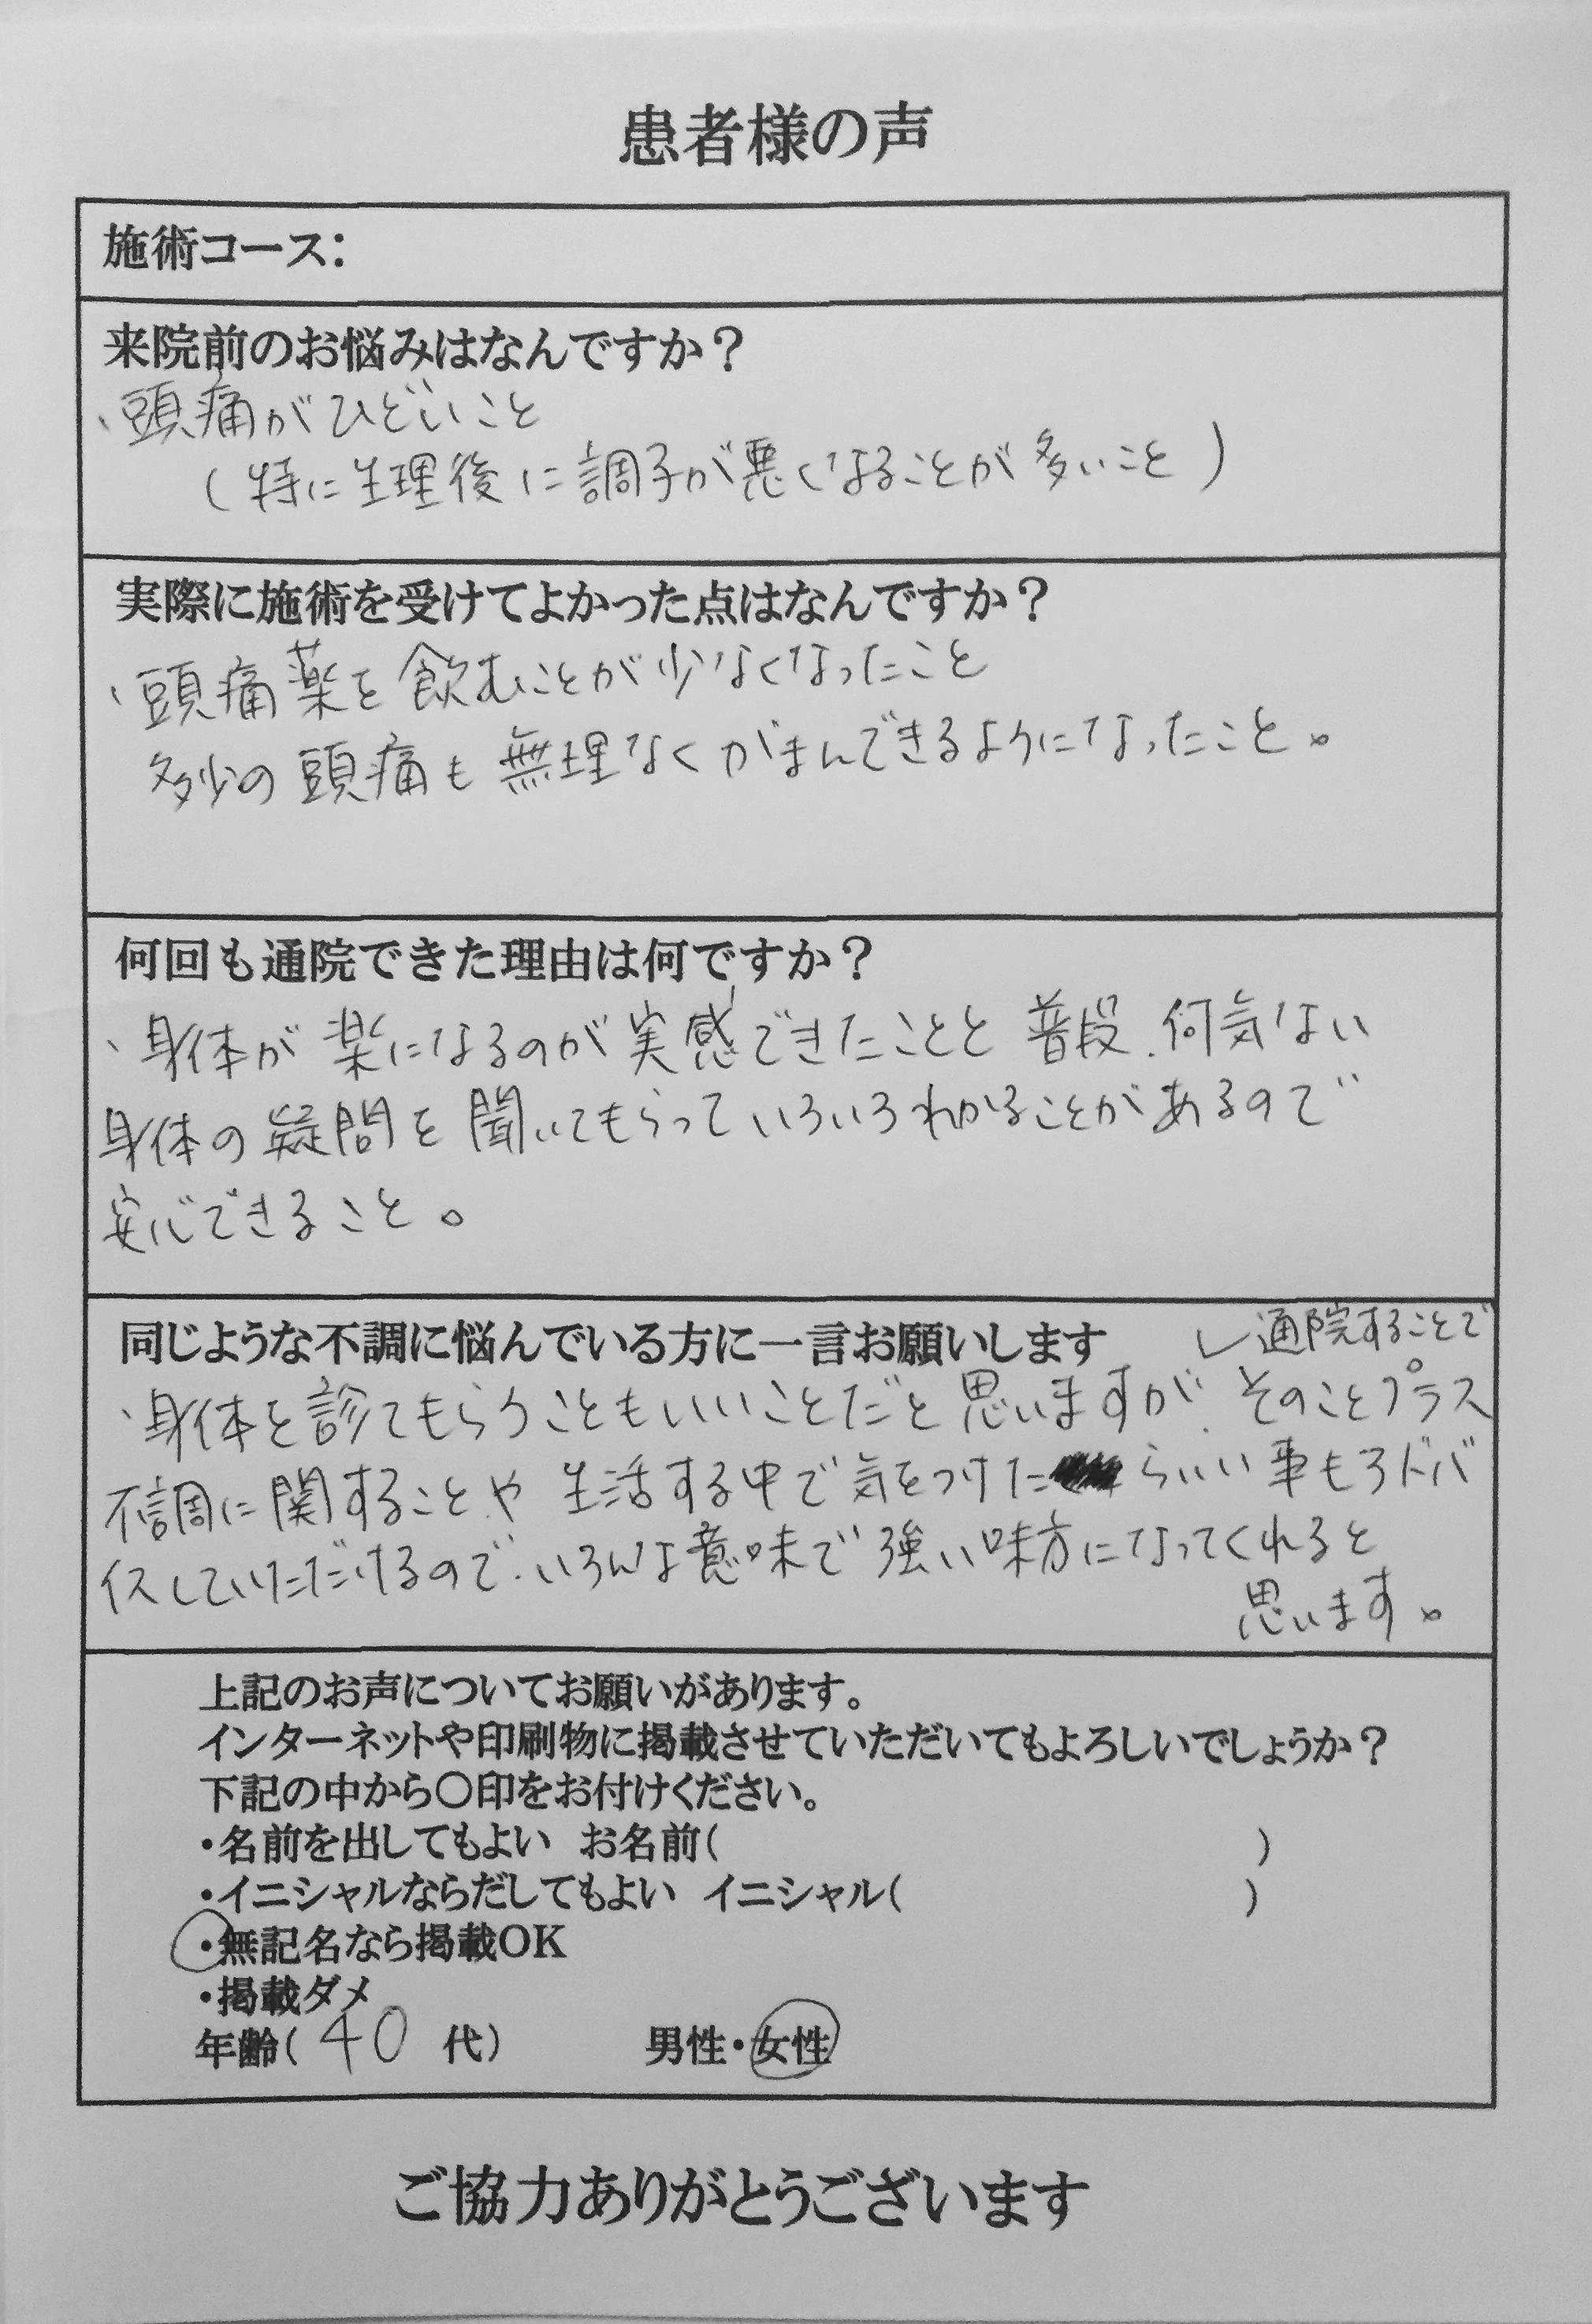 患者様の声
施術コース：
来院前のお悩みはなんですか？
、頭痛がひどいこと
（特に生理後に調子が悪くなることが多いこと）
実際に施術を受けてよかった点はなんですか？
、頭痛薬を飲むことが少なくなったこと
多少の頭痛も無理なくがまんできるようになったこと。
何回も通院できた理由は何ですか？
、身体が楽になるのが実感できたことと普段、何気ない
身体の疑問を聞いてもらっていろいろわかることがあるので
安心できること。
同じような不調に悩んでいる方に一言お願いします
通院することで
、身体を診てもらうこともいいことだと思いますが、そのことプラス
不調に関することや生活する中で気をつけたらいい事もアドバ
イスしていただけるので、いろんな意味で強い味方になってくれると
思います。
上記のお声についてお願いがあります。
インターネットや印刷物に掲載させていただいてもよろしいでしょうか？
下記の中から〇印をお付けください。
・名前を出してもよい　お名前（　　　　　　　　　　）
・イニシャルならだしてもよい　イニシャル（　　　　　　　　）
・無記名なら掲載OK
・掲載ダメ
年齢（40代）　　男性・女性
ご協力ありがとうございます